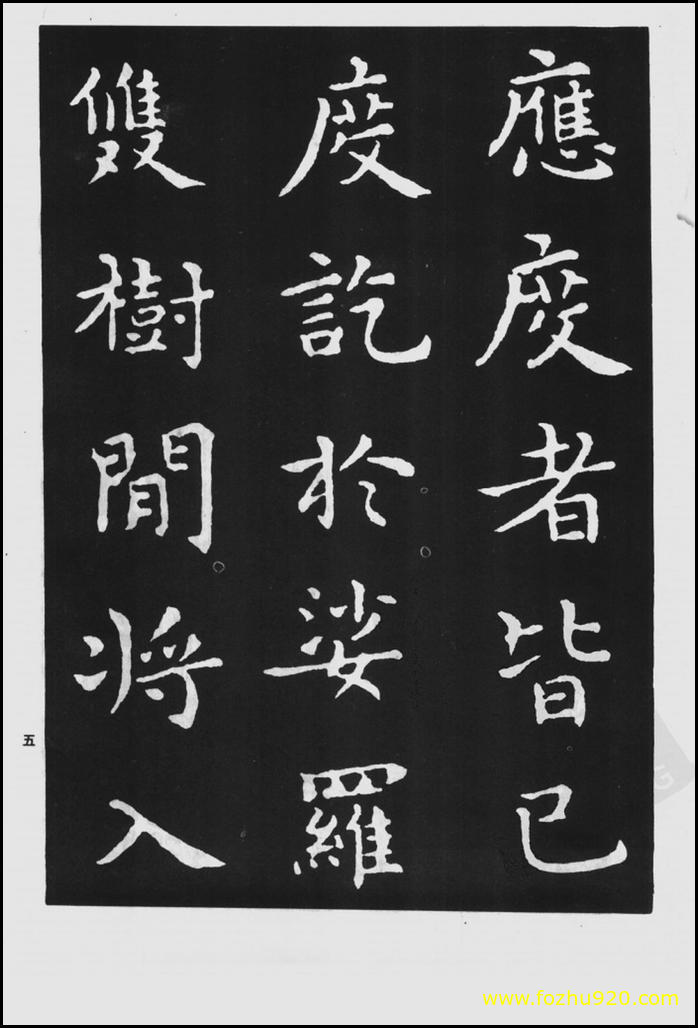 應度者皆已
度訖於娑羅
雙樹間將入
五
www.fozhu920.com